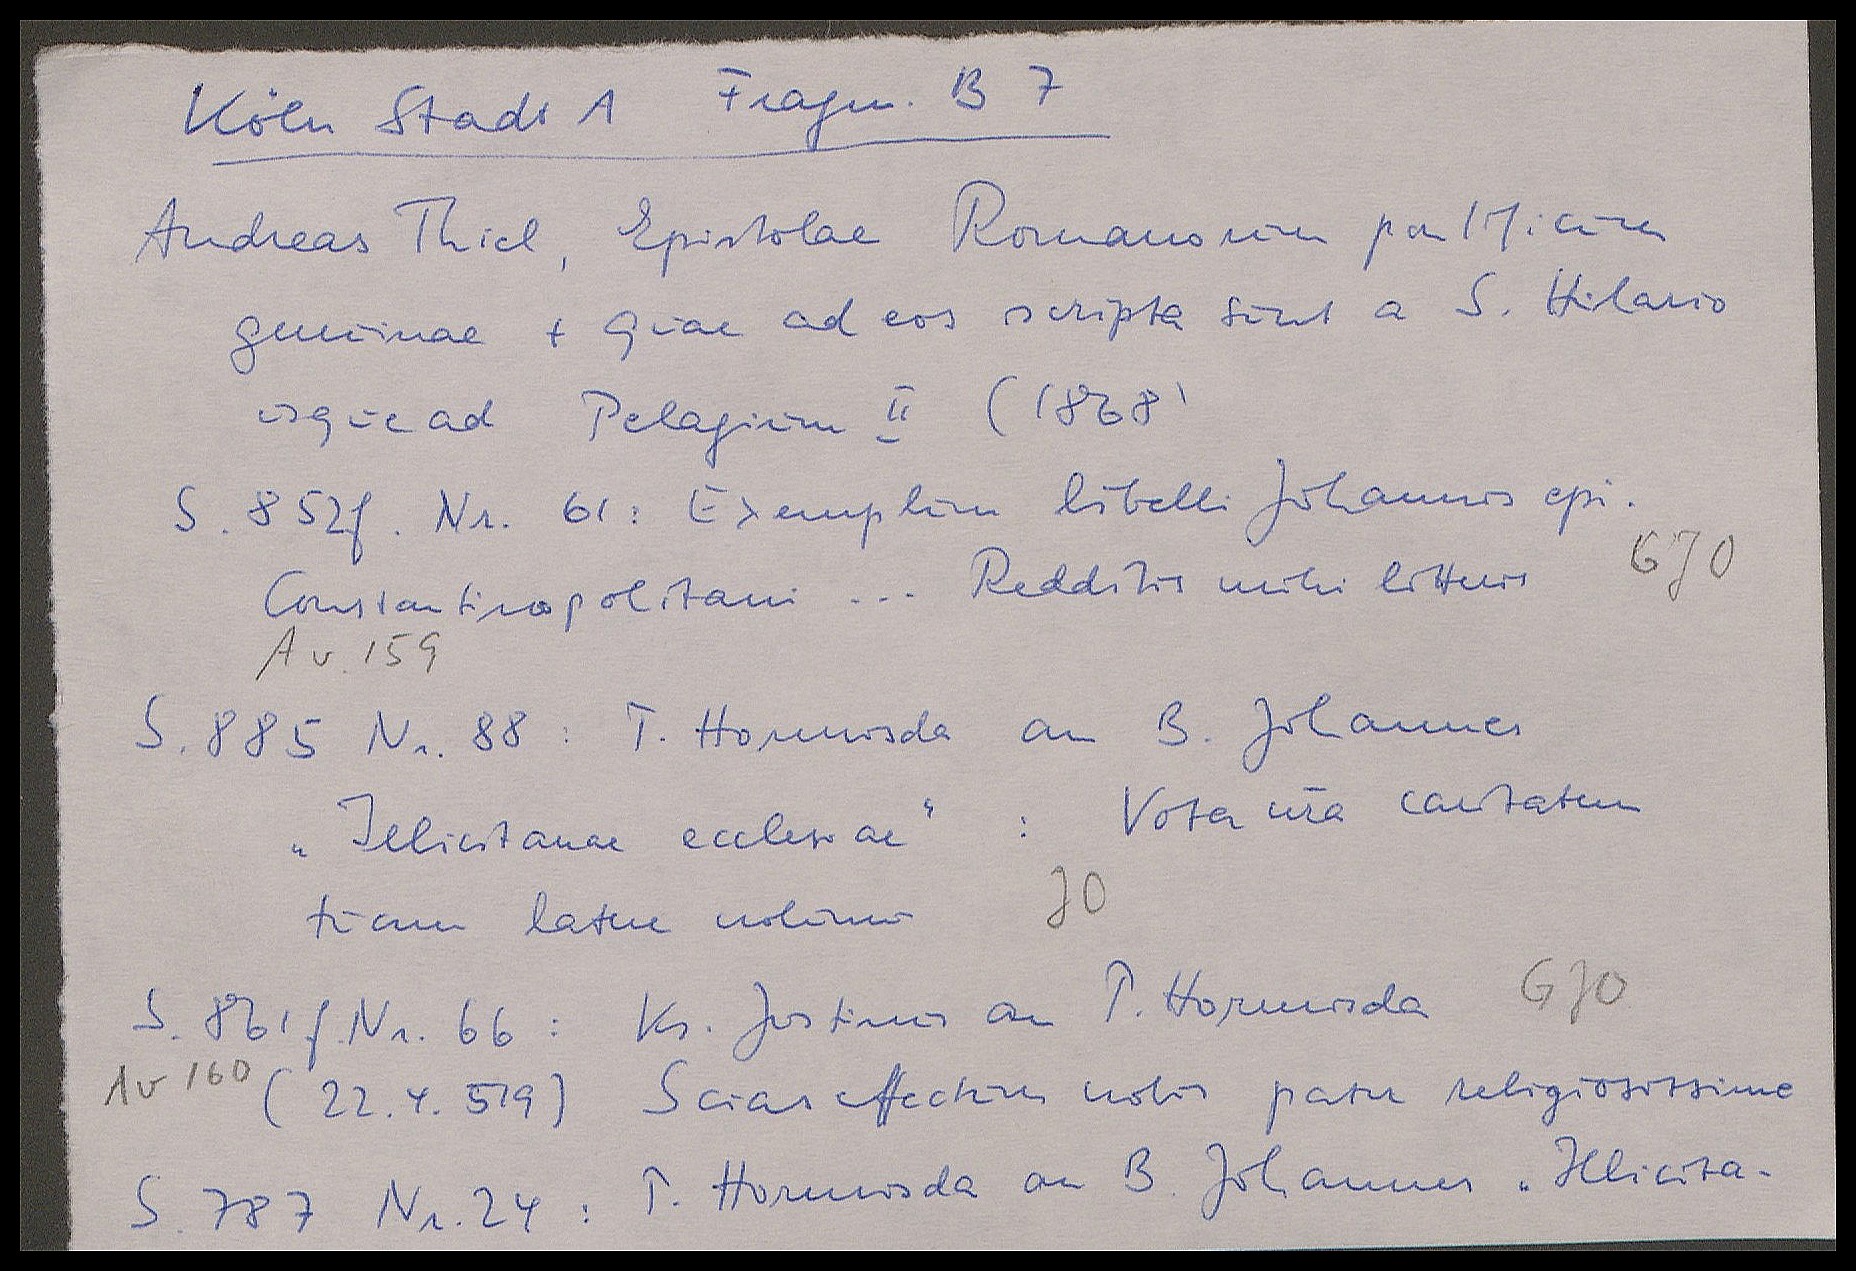 Köln Stadt A Fragm. B 7
Andreas Thiel, Epistolae Romanorum pontificum
genuinae + quae ad eos scripta sunt a S. Hilario
usque ad Pelagium II (1868)
S. 852f. Nr. 61: Exemplum libelli Johannis epi.
Constantinopolitani ... Redditis mihi litteris GJO
Av. 159
S. 885 Nr. 88: P. Hormisda an B. Johannes
„Illicitanae ecclesiae“ : Vota nra caritatem
tuam latere nolumus JO
S. 861f. Nr. 66: Ks. Justinus an P. Hormisda GJO
Av 160 (22.4.519) Scias effectum nobis pater religiosissime
S. 787 Nr. 24: P. Hormisda an B. Johannes „Illicita-